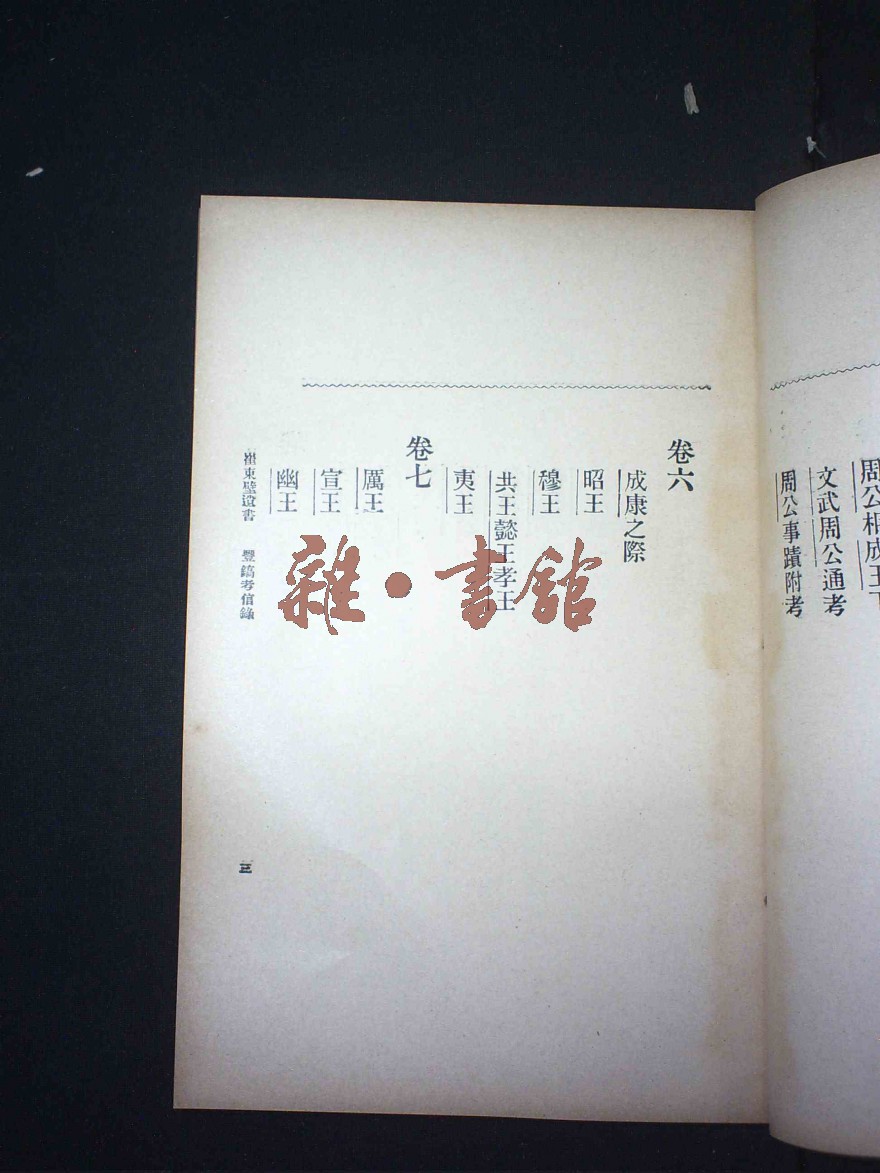 周公相成王
文武周公通考
周公事蹟附考
卷六
成康之際
昭王
穆王
共王懿王孝王
夷王
卷七
厲王
宣王
幽王
崔東壁遺書 豐鎬考信錄
三
雜·書館